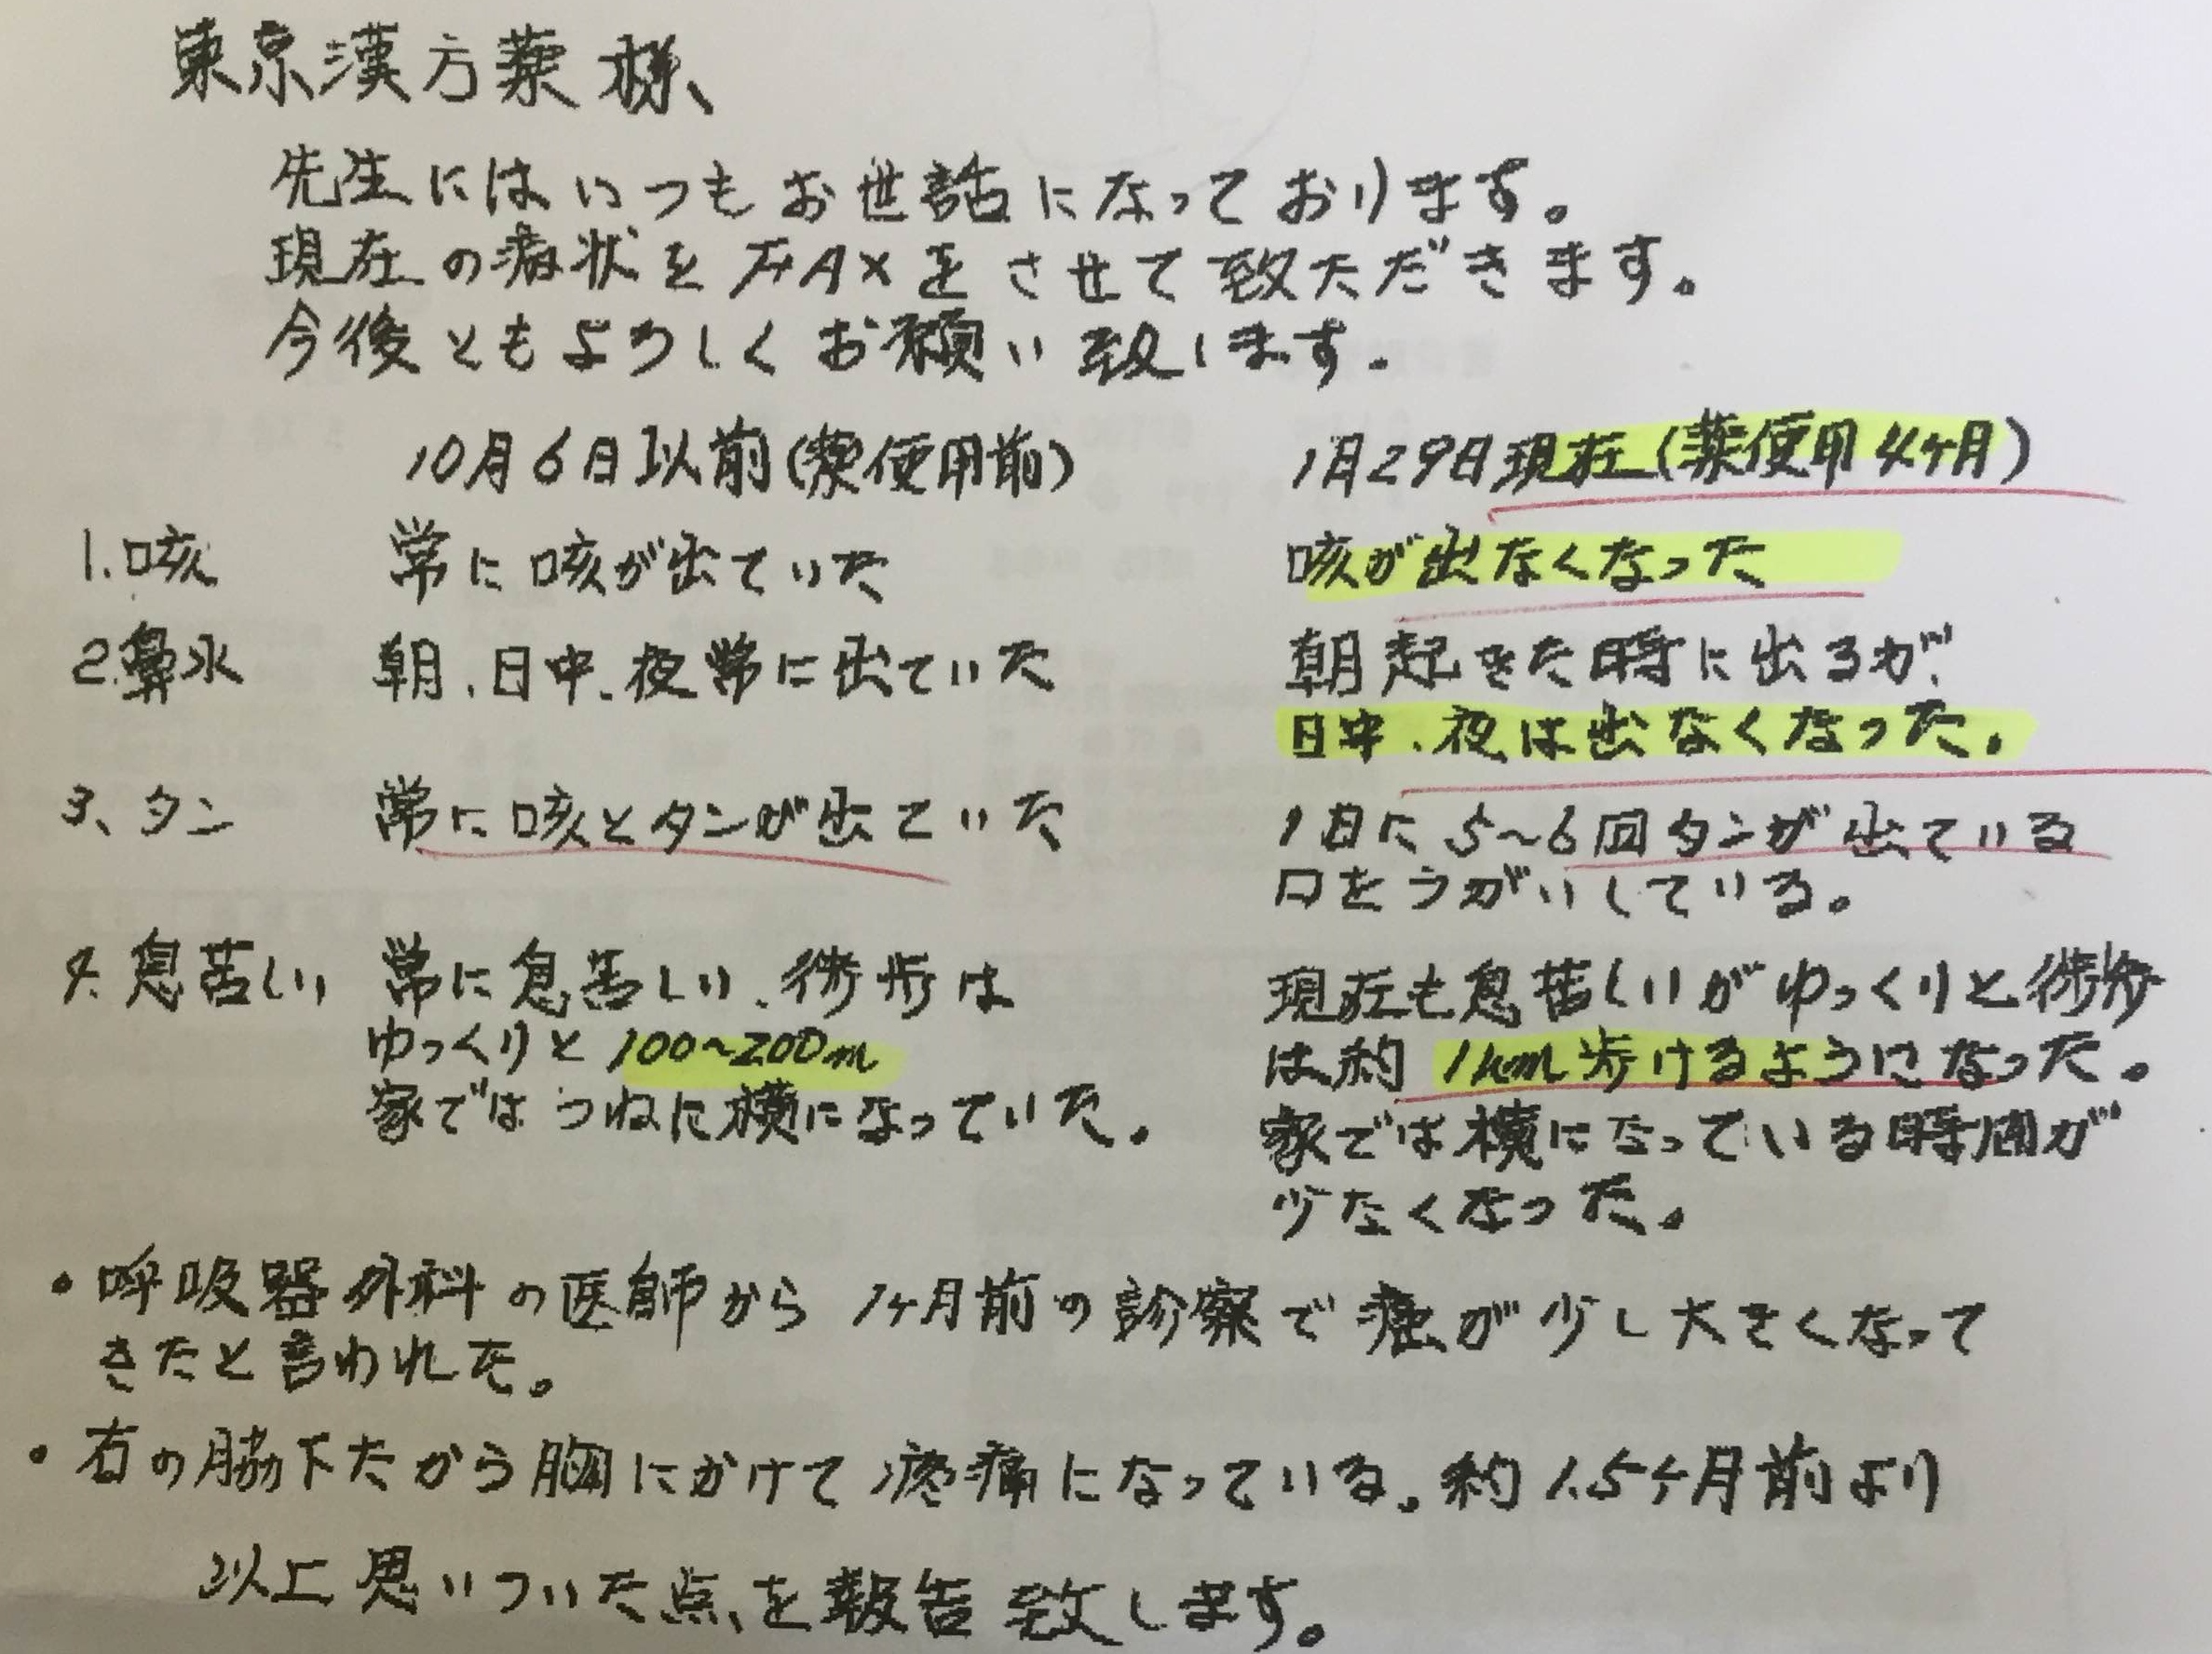 東京漢方薬様、
先生にはいつもお世話になっております。
現在の病状をFAXをさせて致ただきます。
今後ともよろしくお願い致します.
10月6日以前(薬使用前) 1月29日現在(薬使用4ヶ月)
1.咳 常に咳が出ていた 咳が出なくなった
2.鼻水 朝、日中、夜常に出ていた 朝起きた時に出るが、
日中、夜は出なくなった。
3、タン 常に咳とタンが出ていた 1日に5~6回タンが出ている
口をうがいしている。
4.息苦しい 常に息苦しい、徒歩は 現在も息苦しいがゆっくりと徒歩
ゆっくりと100~200m は約1km歩けるようになった。
家ではつねに横になっていた。 家では横になっている時間が
少なくなった。
・呼吸器外科の医師から1ヶ月前の診察で癌が少し大きくなって
きたと言われた。
・右の脇下たから胸にかけて疼痛になっている。約1.5ヶ月前より
以上思いついた点を報告致します。